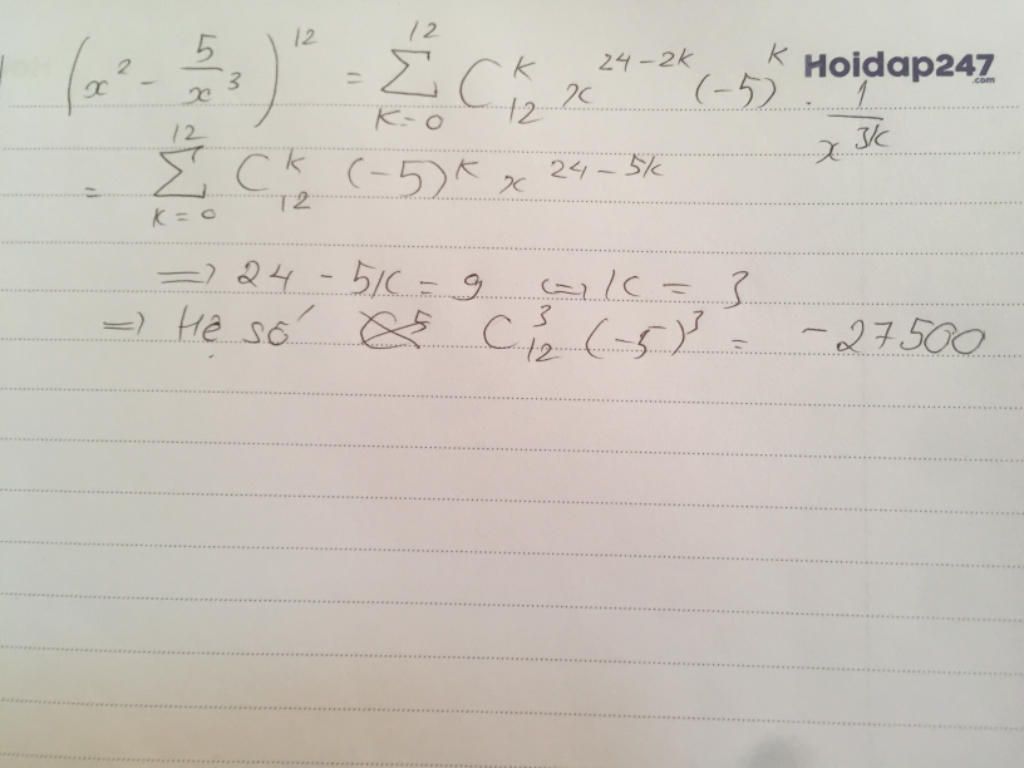 (x² - 5/x³)¹² = 12 Σ K=0 C₁₂ᴷ x²⁴⁻²ᵏ (-5)ᴷ . 1/x³ᵏ
Hoidap247.com
= 12 Σ K=0 C₁₂ᵏ (-5)ᴷ x²⁴⁻⁵ᵏ
=> 24 - 5K = 9 <=> K = 3
=> Hệ số C₁₂³ (-5)³ = -27500